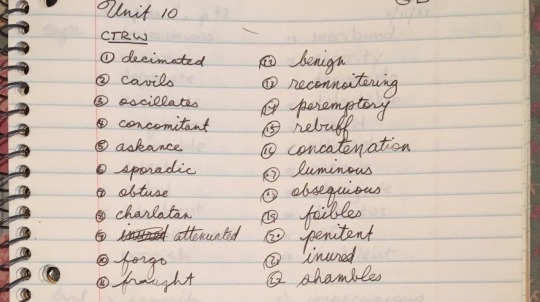 Unit 10
CTRW
① decimated
② cavils
③ oscillates
④ concomitant
⑤ askance
⑥ sporadic
⑦ obtuse
⑧ charlatan
⑨ inured attenuated
⑩ forgo
⑪ fraught
⑫ benign
⑬ reconnoitering
⑭ peremptory
⑮ rebuff
⑯ concatenation
⑰ luminous
⑱ obsequious
⑲ foibles
⑳ penitent
㉑ inured
㉒ shambles